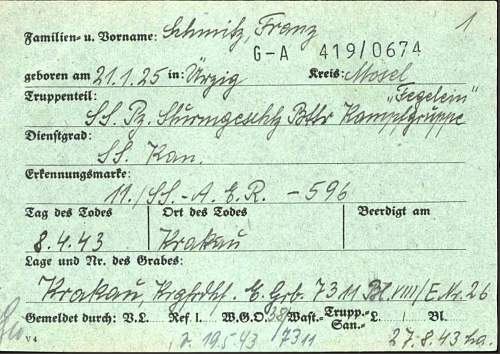 1
Familien- u. Vorname: Schmitz, Franz
G-A 419/0674
geboren am 21.1.25 in: Ürzig Kreis: Mosel
Truppenteil: "Fegelein"
SS. Pz. Sturmgeschtz Bttr Kampfgruppe
Dienstgrad:
SS. Kan.
Erkennungsmarke:
11./SS.-A.E.R. - 596
Tag des Todes Ort des Todes Beerdigt am
8.4.43 Krakau
Lage und Nr. des Grabes:
Krakau, Krgfrdhf. E. Grb. 7311 Bl. VIII/E Nr. 26
Gemeldet durch: V.L. Ref I. W.G.O. 38 Wast.- Trupp.- San.- L. / Bl.
v. 19.5.43 7311 27.8.43
V 4